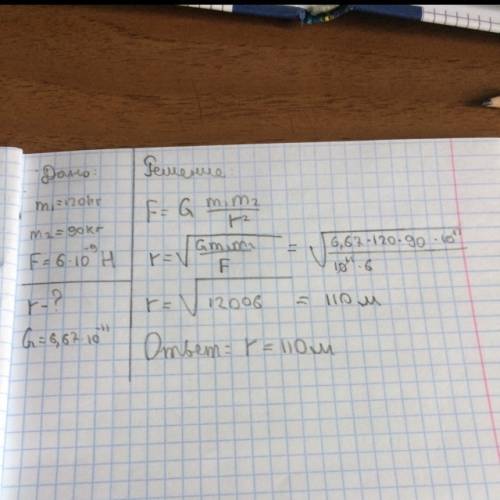 Дано:
m₁=120кг
m₂=90кг
F=6·10⁻⁹ Н
r-?
G=6,67·10⁻¹¹
Решение:
F= G m₁m₂/r²
r=√(Gm₁m₂/F) = √(6,67·120·90·10¹¹/10¹¹·6)
r=√12006 = 110м
Ответ: r=110м